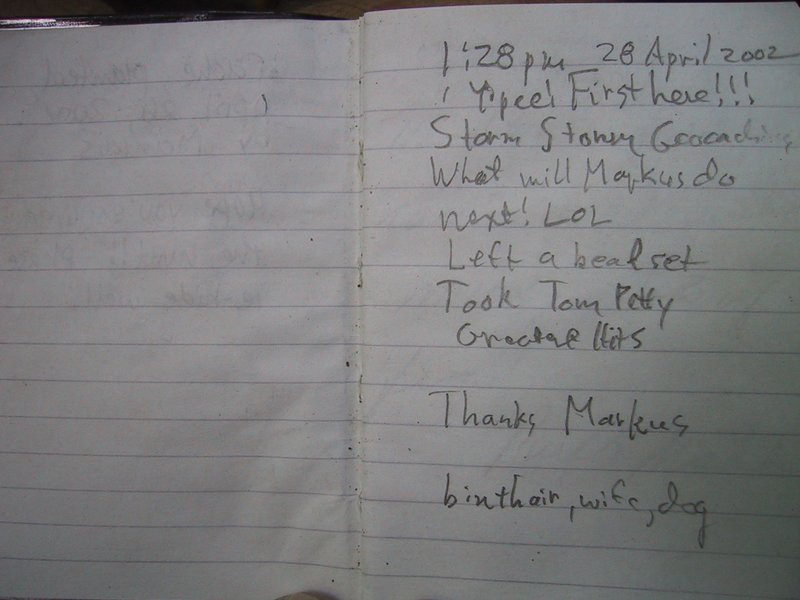 1:28pm 28 April 2002
! Yipee! First here!!!
Storm Stormy Geocaching
What will Markus do
next! LOL
Left a bead set
Took Tom Petty
Greatest Hits
Thanks Markus
binthair, wife, dog